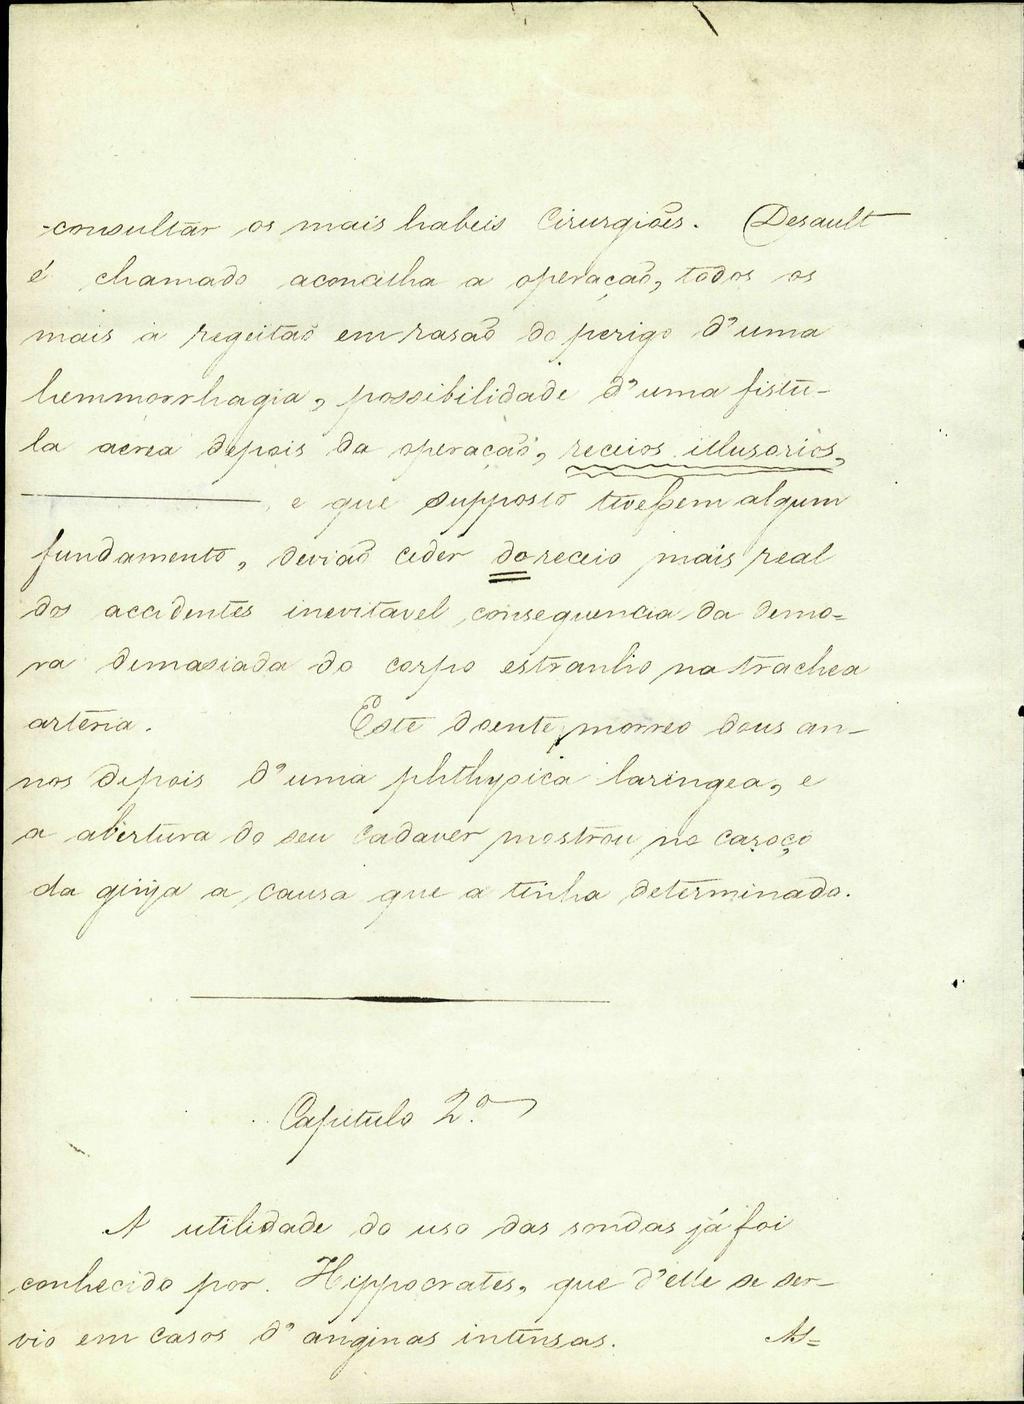 -consultar os mais habeis Cirurgiões. Desault
é chamado aconcelha a operação, todos os
mais a regeitão em rasão do perigo d'uma
hemmorrhagia, possibilidade d'uma fistu-
la aerea depois da operação, receios illusorios,
e que supposto tivessem algum
fundamento, devião ceder do receio mais real
dos accidentes inevitavel consequencia da demo=
ra demasiada do corpo estranho na trachea
arteria. Este doente morreo dous an-
nos depois d'uma phthysica laringea, e
a abertura do seu cadaver mostrou no caroço
da ginja a causa que a tinha determinado.
Capitulo 2.º
A utilidade do uso das sondas já foi
conhecido por Hippocrates, que d'elle se ser-
vio em casos d'anginas intensas. As=